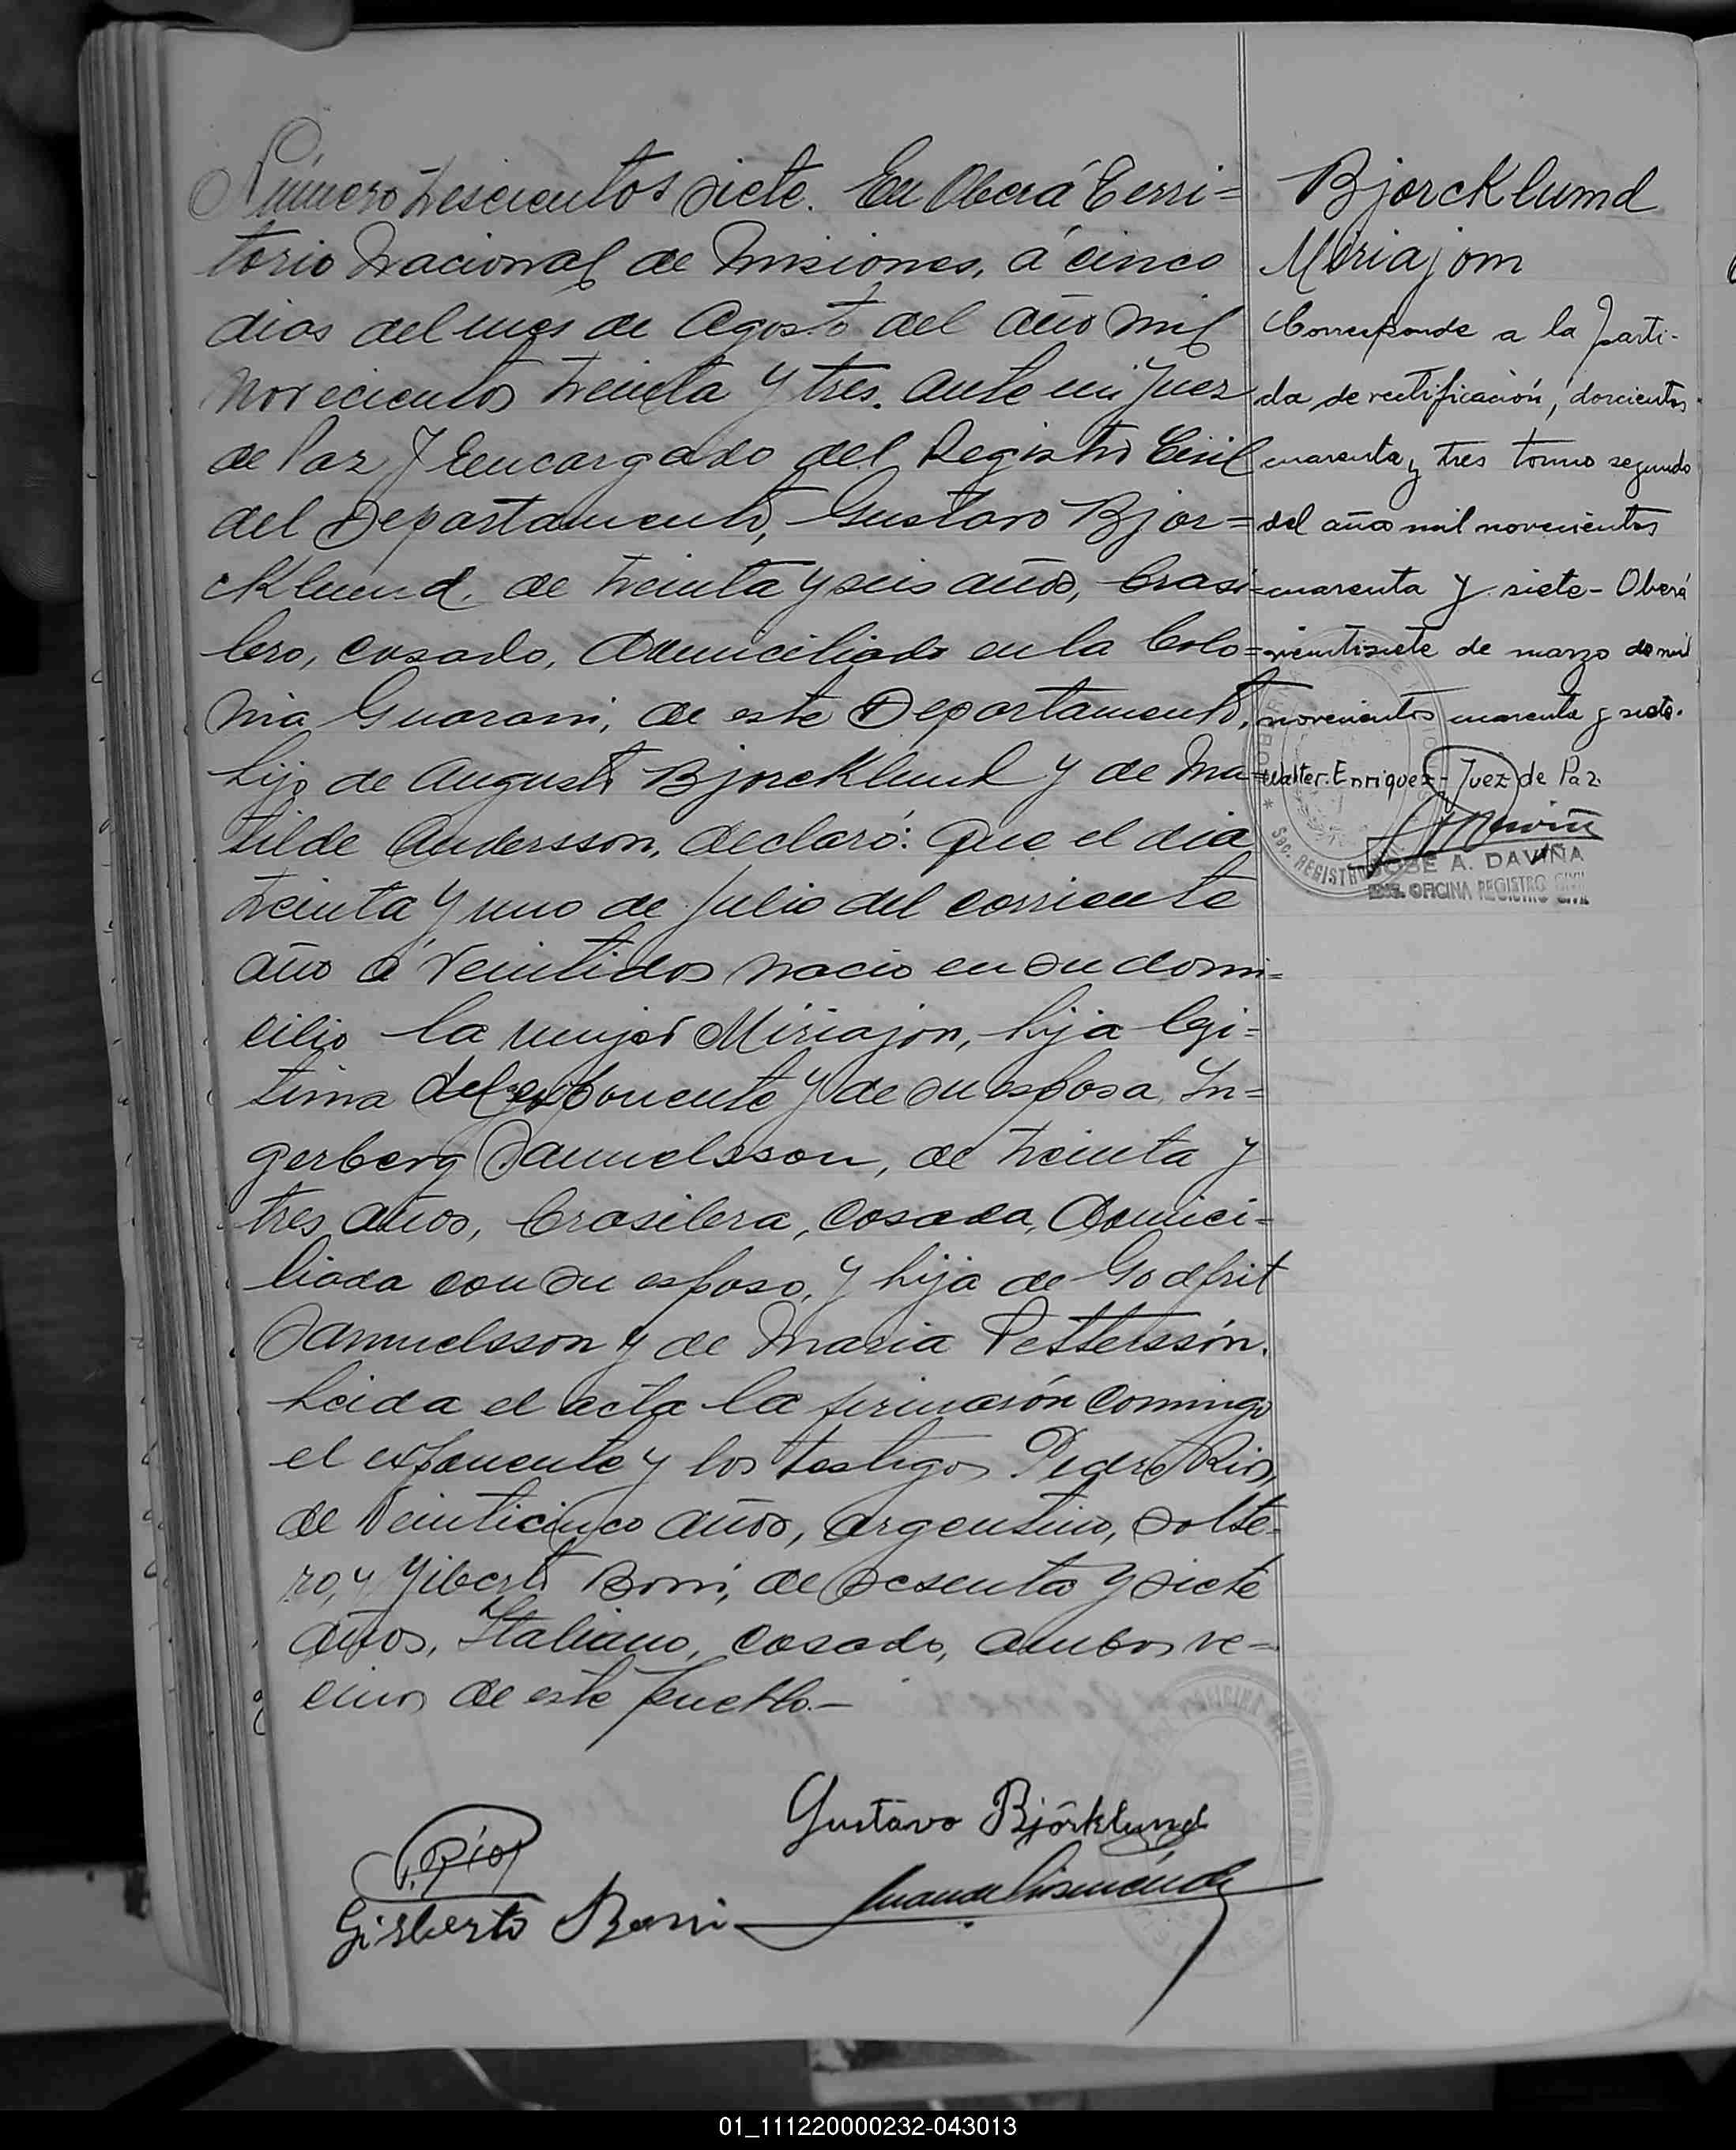 Número trescientos siete. En Oberá Terri=
torio Nacional de Misiones, á cinco
dias del mes de Agosto del año mil
novecientos treinta y tres. ante mi Juez
de Paz y Encargado del Registro Civil
del Departamento, Gustavo Bjor=
cklund, de treinta y seis años, brasi=
lero, casado, domiciliado en la Colo=
nia Guarani, de este Departamento,
hijo de Augusto Bjorcklund y de Ma=
tilde Andersson, declaró: Que el dia
treinta y uno de Julio del corriente
año á veintidos nació en su domi=
cilio la mujer Miriajon, hija legi=
tima del exponente y de su esposa In=
gerberg Samuelsson, de treinta y
tres años, brasilera, casada, domici=
liada con su esposo, y hija de Godfrit
Samuelsson y de Maria Pettersson.
Leida el acta la firmarón conmigo
el exponente y los testigos Pedro Rios,
de veinticinco años, argentino, solte=
ro, y Gilberto Boni, de sesenta y siete
años, Italiano, casado, ambos ve=
cinos de este pueblo.—
Gustavo Björklund
P. Rios
Gisberto Boni
Bjorcklumd
Miriajom
Corresponde a la parti-
da de rectificación, doscientos
cuarenta y tres tomo segundo
del año mil novecientos
cuarenta y siete - Oberá
veintisiete de marzo de mil
novecientos cuarenta y siete.
Walter Enriquez - Juez de Paz
JOSE A. DAVIÑA
OFICINA REGISTRO CIVIL
Sec. REGISTRO
01_111220000232-043013